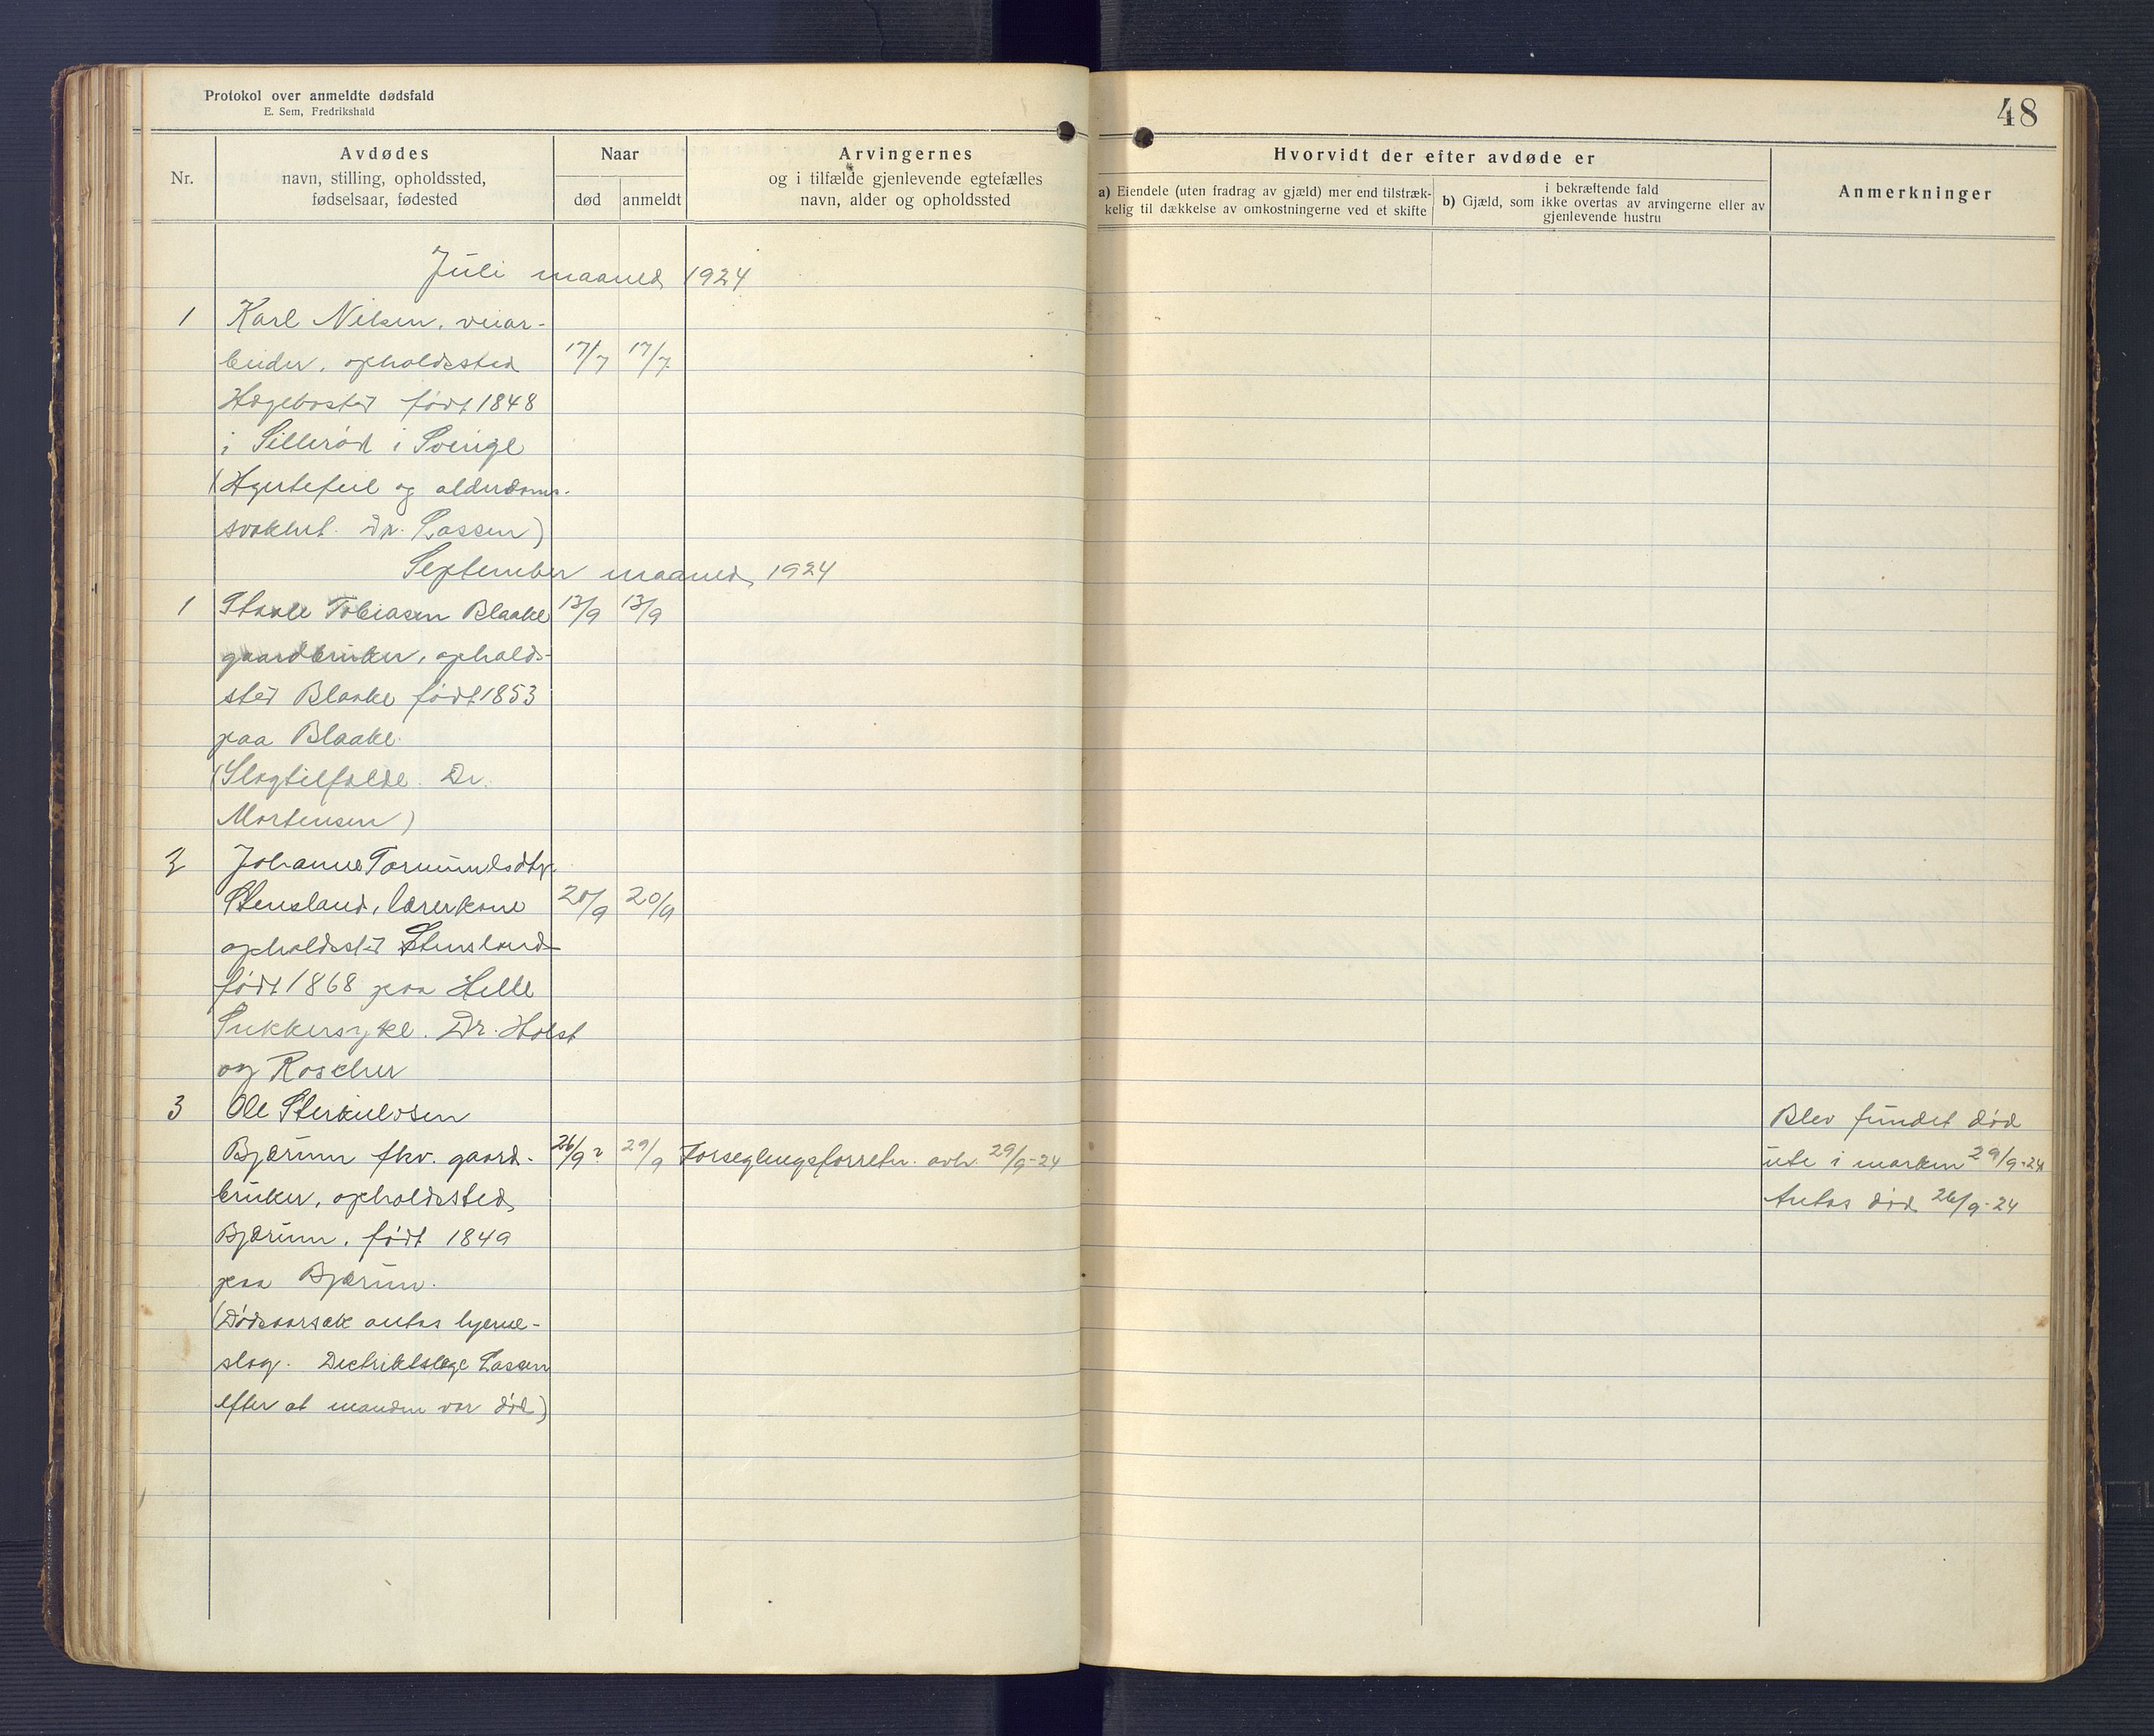 Protokol over anmeldte dødsfald
E. Sem, Fredrikshald
48
Nr.
Avdødes
navn, stilling, opholdssted,
fødselsaar, fødested
Naar
død
anmeldt
Arvingernes
og i tilfælde gjenlevende egtefælles
navn, alder og opholdssted
Hvorvidt der efter avdøde er
a) Eiendele (uten fradrag av gjæld) mer end tilstræk-
kelig til dækkelse av omkostningerne ved et skifte
i bekræftende fald
b) Gjæld, som ikke overtas av arvingerne eller av
gjenlevende hustru
Anmerkninger
Juli maaned 1924
1 Karl Nilsen, veiar-
beider, opholdssted 17/7 17/7
Hægebostad født 1848
i Sillerød i Sverige
(Hjertefeil og alderdoms-
svakhet. Dr. Lassen)
September maaned, 1924
1 Staale Tobiasen Blaake 13/9 13/9
gaardbruker, opholds-
sted Blaake født 1853
paa Blaake.
(Slagtilfælde. Dr.
Mortensen)
2 Johanne Tormundsdtr.
Stensland, lærerkone 20/9 20/9
opholdssted Stensland
født 1868 paa Helle
Sukkersyke. Dr. Holst
og Roscher
3 Ole Sterkulvsen
Bjærum fhv. gaard- 26/9? 29/9 Forseglingsforretn. avh. 29/9-24
bruker, opholdssted
Bjærum, født 1849
paa Bjærum.
(Dødsaarsak antas hjerne-
slag. Distriktslæge Lassen
efter at manden var død)
Blev fundet død
ute i marken 29/9-24
Antas død 26/9-24